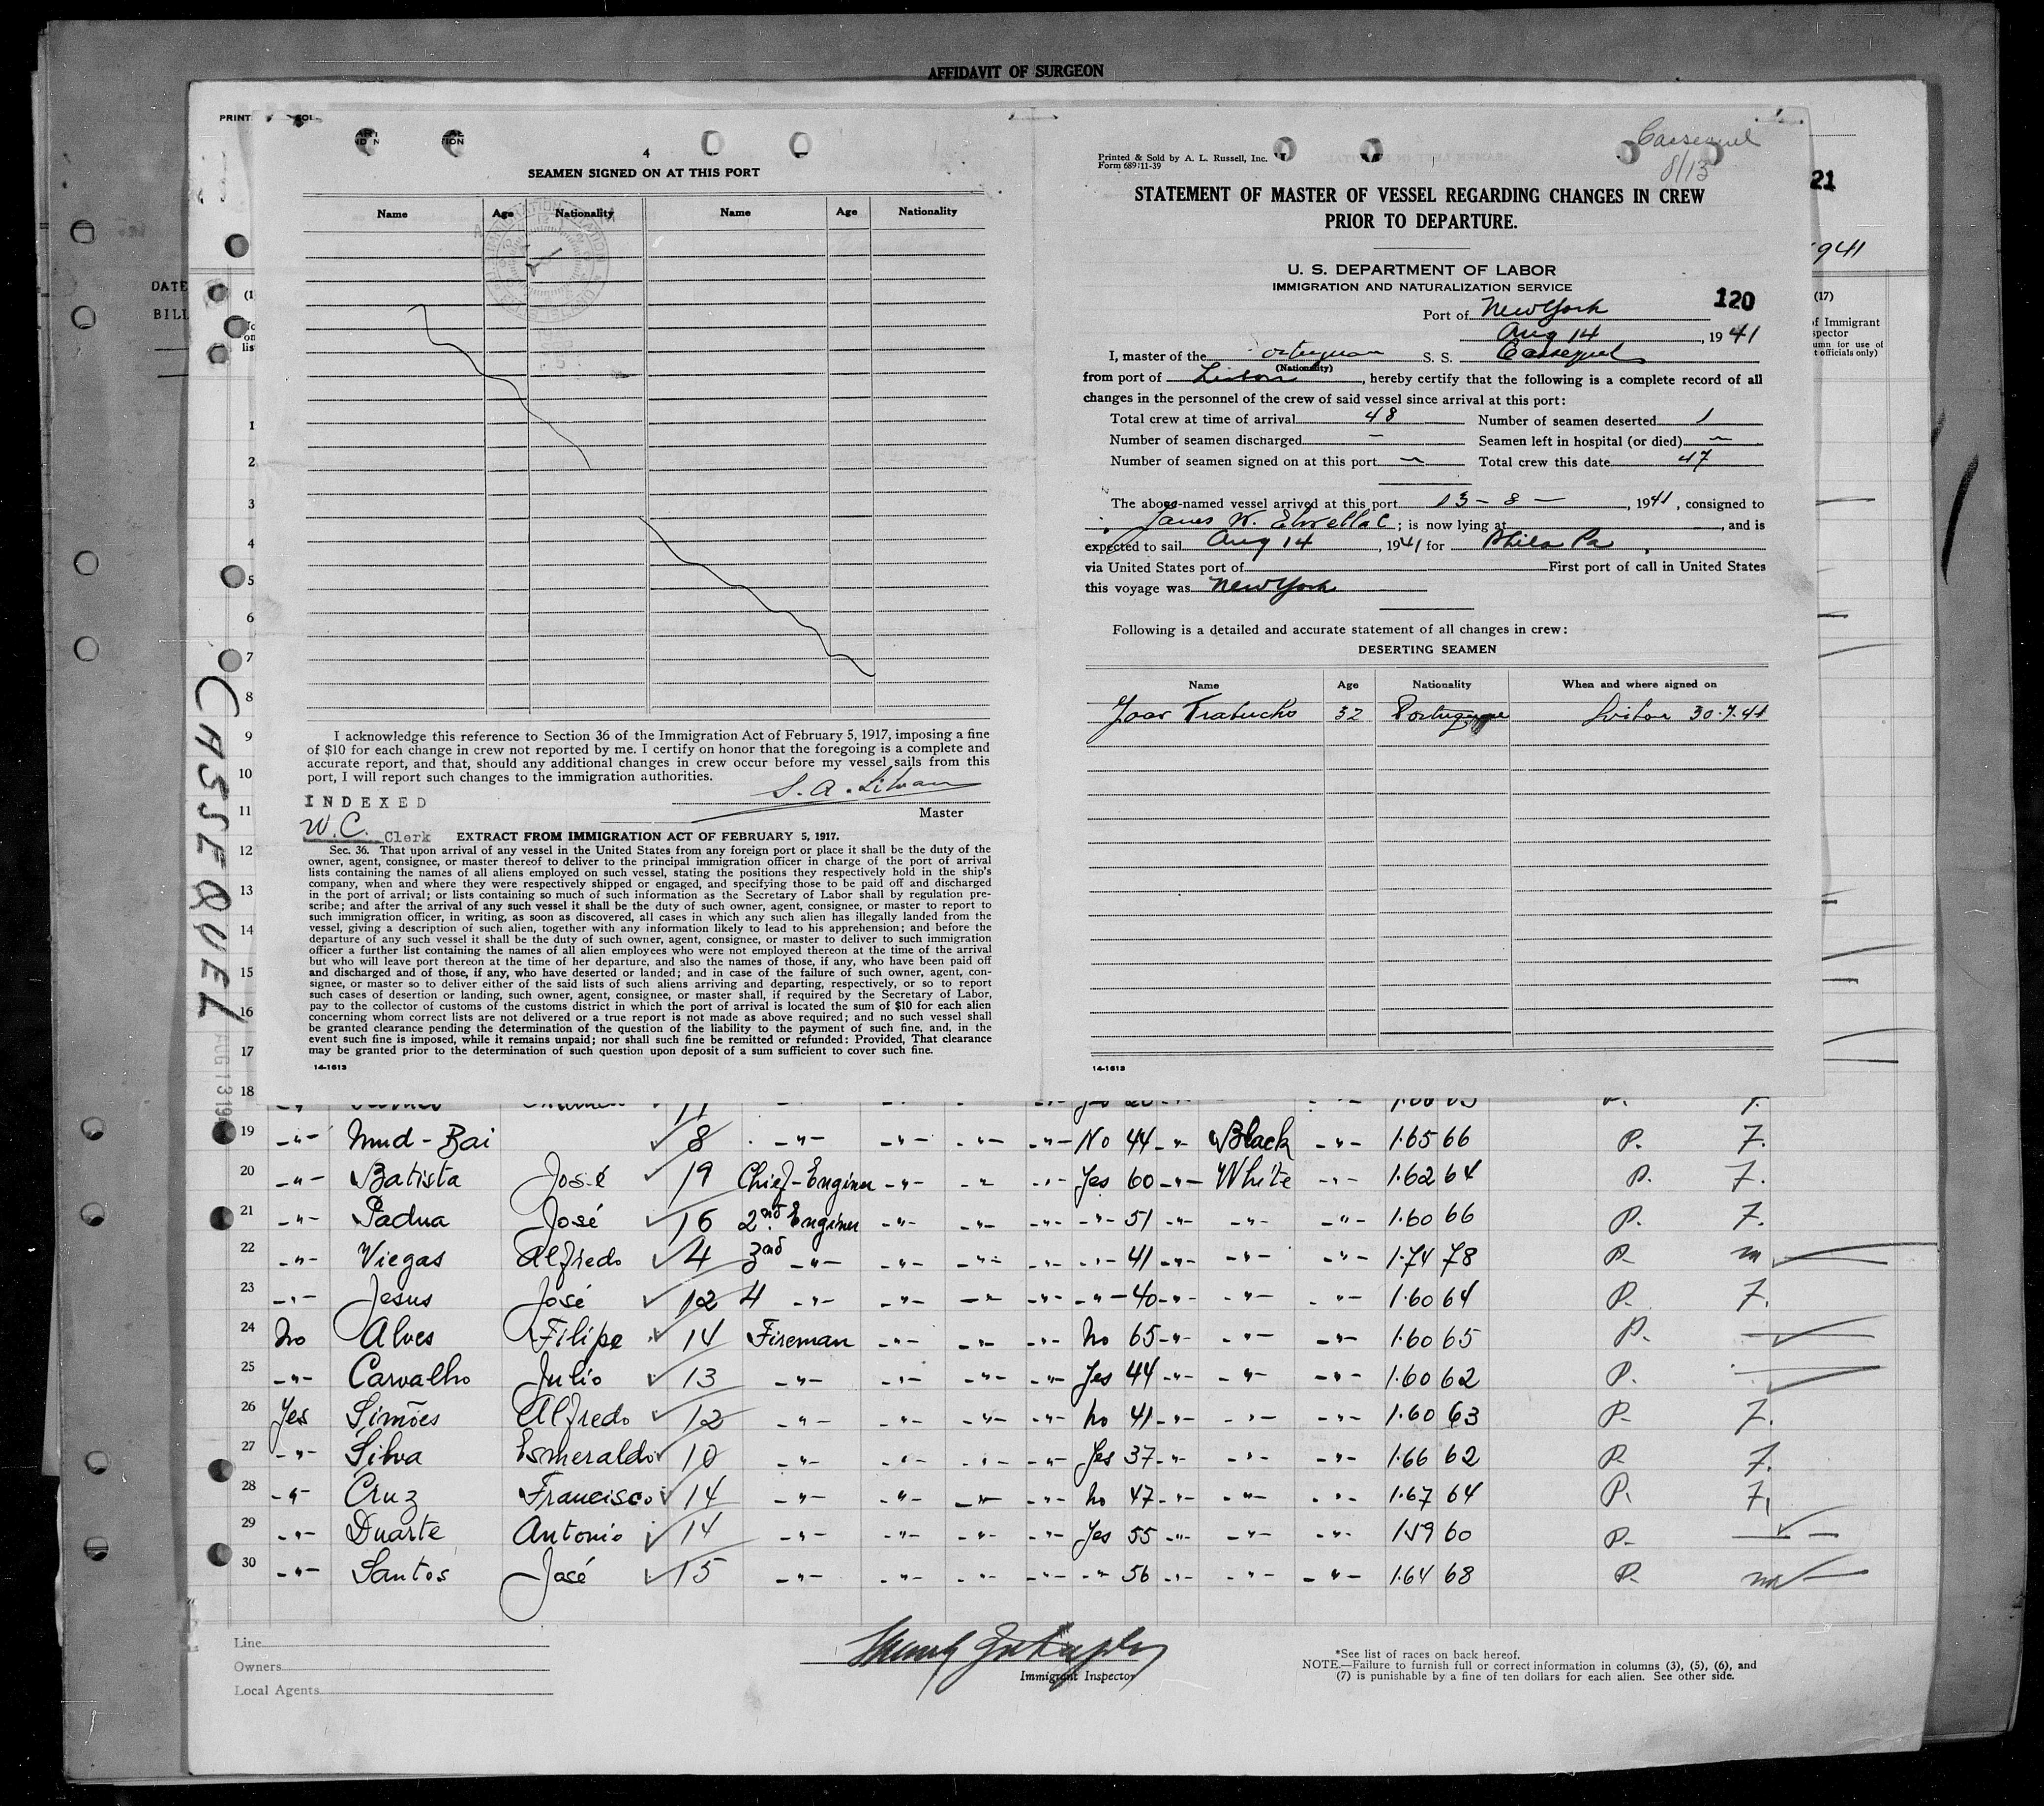 AFFIDAVIT OF SURGEON
4
SEAMEN SIGNED ON AT THIS PORT
Name Age Nationality Name Age Nationality
I acknowledge this reference to Section 36 of the Immigration Act of February 5, 1917, imposing a fine
of $10 for each change in crew not reported by me. I certify on honor that the foregoing is a complete and
accurate report, and that, should any additional changes in crew occur before my vessel sails from this
port, I will report such changes to the immigration authorities.
INDEXED
Master
W.C. Clerk
EXTRACT FROM IMMIGRATION ACT OF FEBRUARY 5, 1917.
Sec. 36. That upon arrival of any vessel in the United States from any foreign port or place it shall be the duty of the
owner, agent, consignee, or master thereof to deliver to the principal immigration officer in charge of the port of arrival
lists containing the names of all aliens employed on such vessel, stating the positions they respectively hold in the ship's
company, when and where they were respectively shipped or engaged, and specifying those to be paid off and discharged
in the port of arrival; or lists containing so much of such information as the Secretary of Labor shall by regulation pre-
scribe; and after the arrival of any such vessel it shall be the duty of such owner, agent, consignee, or master to report to
such immigration officer, in writing, as soon as discovered, all cases in which any such alien has illegally landed from the
vessel, giving a description of such alien, together with any information likely to lead to his apprehension; and before the
departure of any such vessel it shall be the duty of such owner, agent, consignee, or master to deliver to such immigration
officer a further list containing the names of all alien employees who were not employed thereon at the time of the arrival
but who will leave port thereon at the time of her departure, and also the names of those, if any, who have been paid off
and discharged and of those, if any, who have deserted or landed; and in case of the failure of such owner, agent, con-
signee, or master so to deliver either of the said lists of such aliens arriving and departing, respectively, or so to report
such cases of desertion or landing, such owner, agent, consignee, or master shall, if required by the Secretary of Labor,
pay to the collector of customs of the customs district in which the port of arrival is located the sum of $10 for each alien
concerning whom correct lists are not delivered or a true report is not made as above required; and no such vessel shall
be granted clearance pending the determination of the question of the liability to the payment of such fine, and, in the
event such fine is imposed, while it remains unpaid; nor shall such fine be remitted or refunded: Provided, That clearance
may be granted prior to the determination of such question upon deposit of a sum sufficient to cover such fine.
14-1613
Cassequel
8/13
Printed & Sold by A. L. Russell, Inc.
Form 689:11-39
STATEMENT OF MASTER OF VESSEL REGARDING CHANGES IN CREW
PRIOR TO DEPARTURE.
U. S. DEPARTMENT OF LABOR
IMMIGRATION AND NATURALIZATION SERVICE
120
Port of New York
Aug 14, 1941
I, master of the S. S. Cassequel
(Nationality)
from port of Lisbon, hereby certify that the following is a complete record of all
changes in the personnel of the crew of said vessel since arrival at this port:
Total crew at time of arrival 48 Number of seamen deserted 1
Number of seamen discharged — Seamen left in hospital (or died) —
Number of seamen signed on at this port — Total crew this date 47
The above-named vessel arrived at this port 13-8-, 1941, consigned to
James W. ; is now lying at , and is
expected to sail Aug 14, 1941 for Phila Pa,
via United States port of First port of call in United States
this voyage was New York
Following is a detailed and accurate statement of all changes in crew:
DESERTING SEAMEN
Name Age Nationality When and where signed on
Joao Trabucho 32 Portuguese Lisbon 30.7.41
14-1613
21
1941
(17)
CASSEQUEL
AUG 13 194
DATE
BILL
1
2
3
4
5
6
7
8
9
10
11
12
13
14
15
16
17
18
19 -"- Mmd-Bai ✓ 8 -"- -"- -"- -"- No 44 -"- Black -"- 1.65 66 P. 7.
20 -"- Batista José ✓ 19 Chief-Enginer -"- -"- -"- Yes 60 -"- White -"- 1.62 64 P. 7.
21 -"- Padua José ✓ 16 2nd Enginer -"- -"- -"- -"- 51 -"- -"- -"- 1.60 66 P. 7.
22 -"- Viegas Alfredo ✓ 4 3rd -"- -"- -"- -"- -"- 41 -"- -"- -"- 1.74 78 P. m
23 -"- Jesus José ✓ 12 4 -"- -"- -"- -"- -"- 40 -"- -"- -"- 1.60 64 P. 7.
24 No Alves Filipe ✓ 14 Fireman -"- -"- -"- No 65 -"- -"- -"- 1.60 65 P. ✓
25 -"- Carvalho Julio ✓ 13 -"- -"- -"- -"- Yes 44 -"- -"- -"- 1.60 62 P. ✓
26 Yes Simões Alfredo ✓ 12 -"- -"- -"- -"- No 41 -"- -"- -"- 1.60 63 P. 7.
27 -"- Silva Esmeraldo ✓ 10 -"- -"- -"- -"- Yes 37 -"- -"- -"- 1.66 62 P. 7.
28 -"- Cruz Francisco ✓ 14 -"- -"- -"- -"- No 47 -"- -"- -"- 1.67 64 P. 7.
29 -"- Duarte Antonio ✓ 14 -"- -"- -"- -"- Yes 55 -"- -"- -"- 1.59 60 P. ✓
30 -"- Santos José ✓ 15 -"- -"- -"- -"- -"- 56 -"- -"- -"- 1.64 68 P. m
Line
Owners
Local Agents
Immigrant Inspector
*See list of races on back hereof.
NOTE.—Failure to furnish full or correct information in columns (3), (5), (6), and
(7) is punishable by a fine of ten dollars for each alien. See other side.